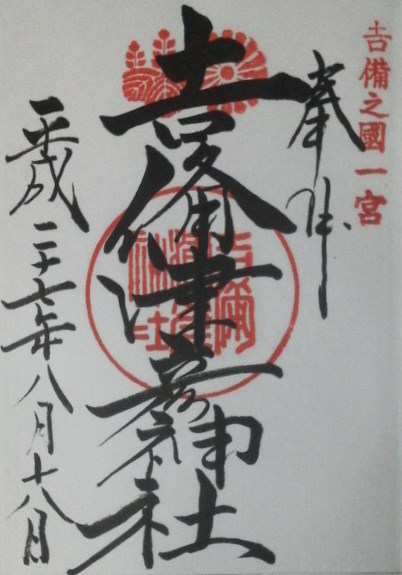 吉備之國一宮
奉拝
吉備津彦神社
平成二十七年八月十八日